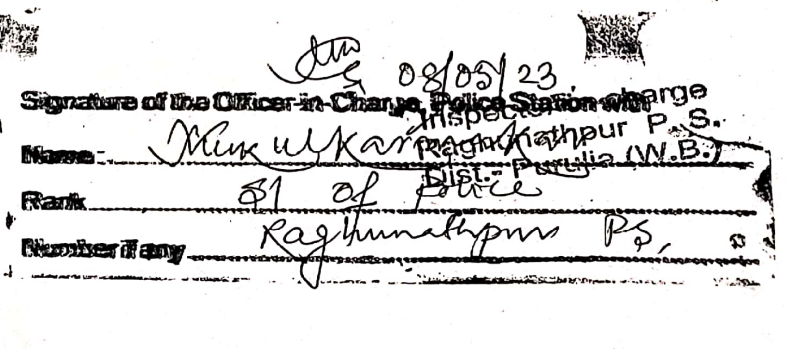 08/05/23
Signature of the Officer-in-Charge, Police Station with
Inspector-in-charge
Raghunathpur P. S.
Dist.- Purulia (W.B.)
Name:- Mukul Kar
Rank SI of Police
Number if any Raghunathpur PS,